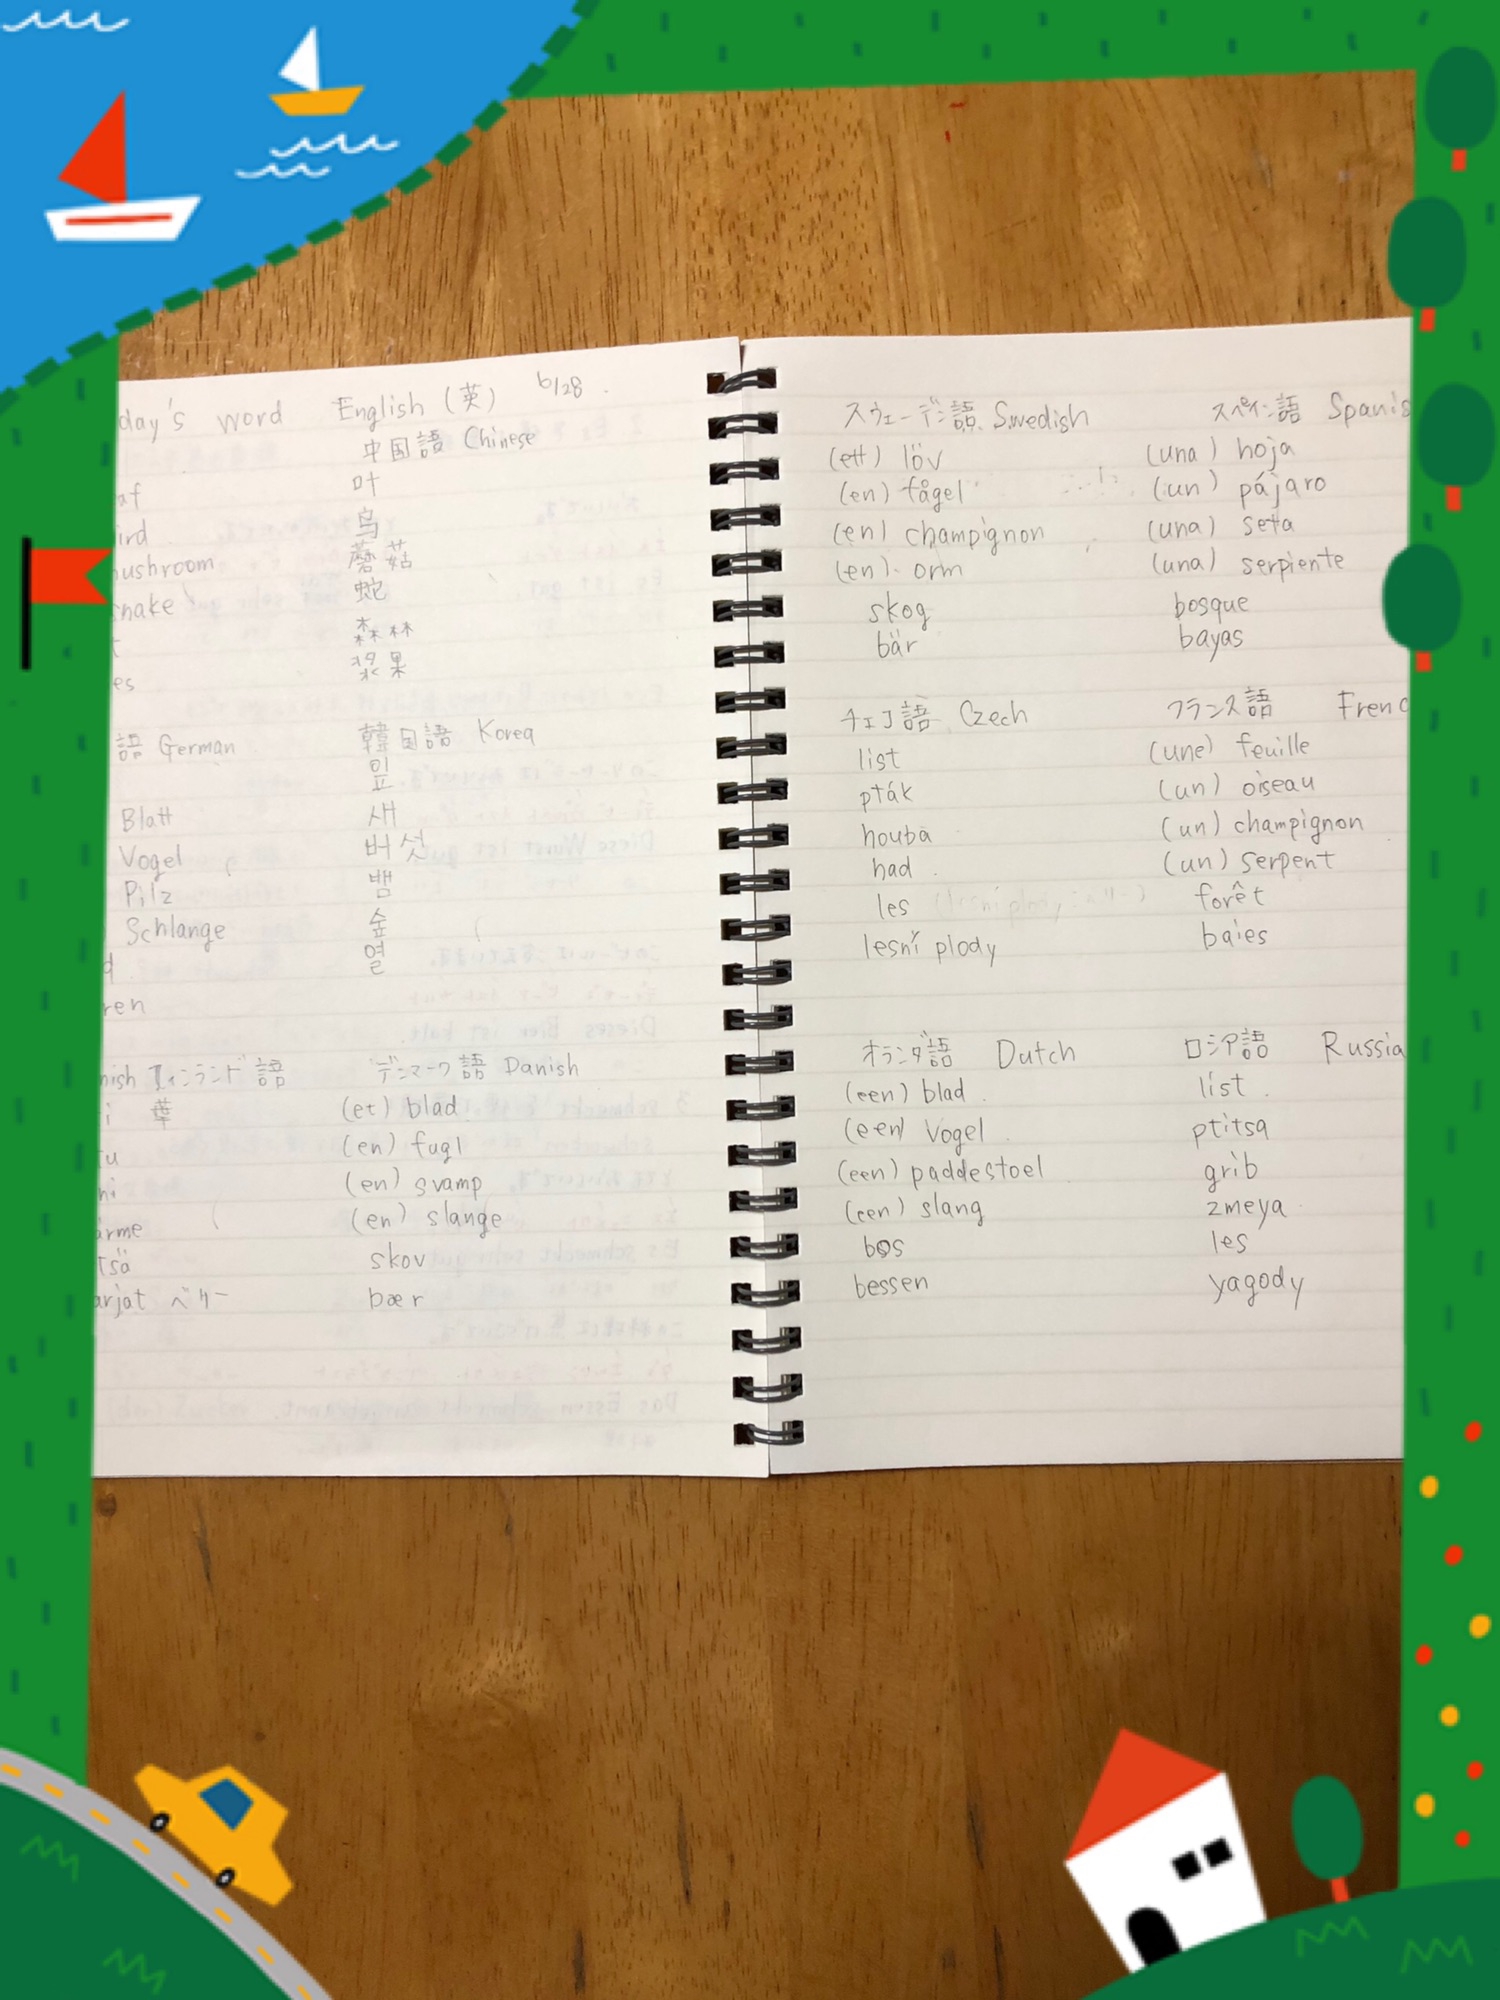 day's word English (英) 6/28
中国語 Chinese
af 叶
ird 鸟
mushroom 蘑菇
snake 蛇
森林
es 浆果
語 German 韓国語 Korea
잎
Blatt 새
Vogel 버섯
Pilz 뱀
Schlange 숲
d 열
ren
nish フィンランド語 デンマーク語 Danish
i 葉 (et) blad
tu (en) fugl
ni (en) svamp
ärme (en) slange
tsä skov
arjat ベリー bær
スウェーデン語 Swedish スペイン語 Spanis
(ett) löv (una) hoja
(en) fågel (un) pájaro
(en) champignon (una) seta
(en) orm (una) serpiente
skog bosque
bär bayas
チェコ語 Czech フランス語 Frenc
list (une) feuille
pták (un) oiseau
houba (un) champignon
had (un) serpent
les forêt
lesní plody baies
オランダ語 Dutch ロシア語 Russia
(een) blad list
(een) Vogel ptitsa
(een) paddestoel grib
(een) slang zmeya
bos les
bessen yagody